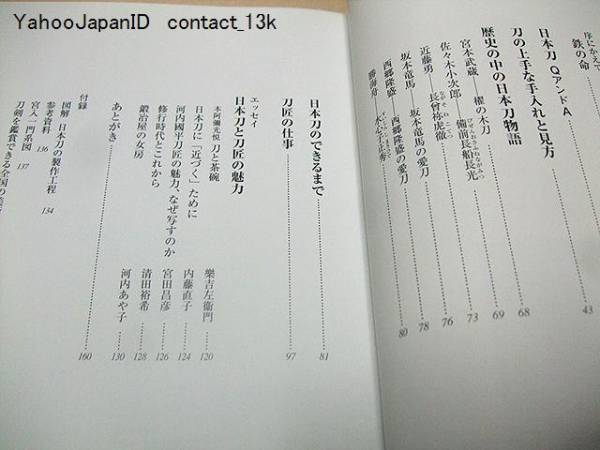 YahooJapanID contact_13k
序にかえて
鉄の命
日本刀 QアンドA 43
刀の上手な手入れと見方
歴史の中の日本刀物語 68
宮本武蔵 櫂の木刀 69
佐々木小次郎 備前長船長光 73
近藤勇 長曾祢虎徹 76
坂本竜馬 坂本竜馬の愛刀 78
西郷隆盛 西郷隆盛の愛刀 80
勝海舟 水心子正秀
日本刀のできるまで 81
刀匠の仕事 97
エッセイ
日本刀と刀匠の魅力
本阿彌光悦 刀と茶碗 樂吉左衞門 120
日本刀に「近づく」ために 内藤直子 124
河内國平刀匠の魅力、なぜ写すのか 宮田昌彦 126
修行時代とこれから 清田裕希 128
鍛冶屋の女房 河内あや子 130
あとがき 160
付録
図解 日本刀の製作工程 134
参考資料 136
宮入一門系図 137
刀剣を鑑賞できる全国の